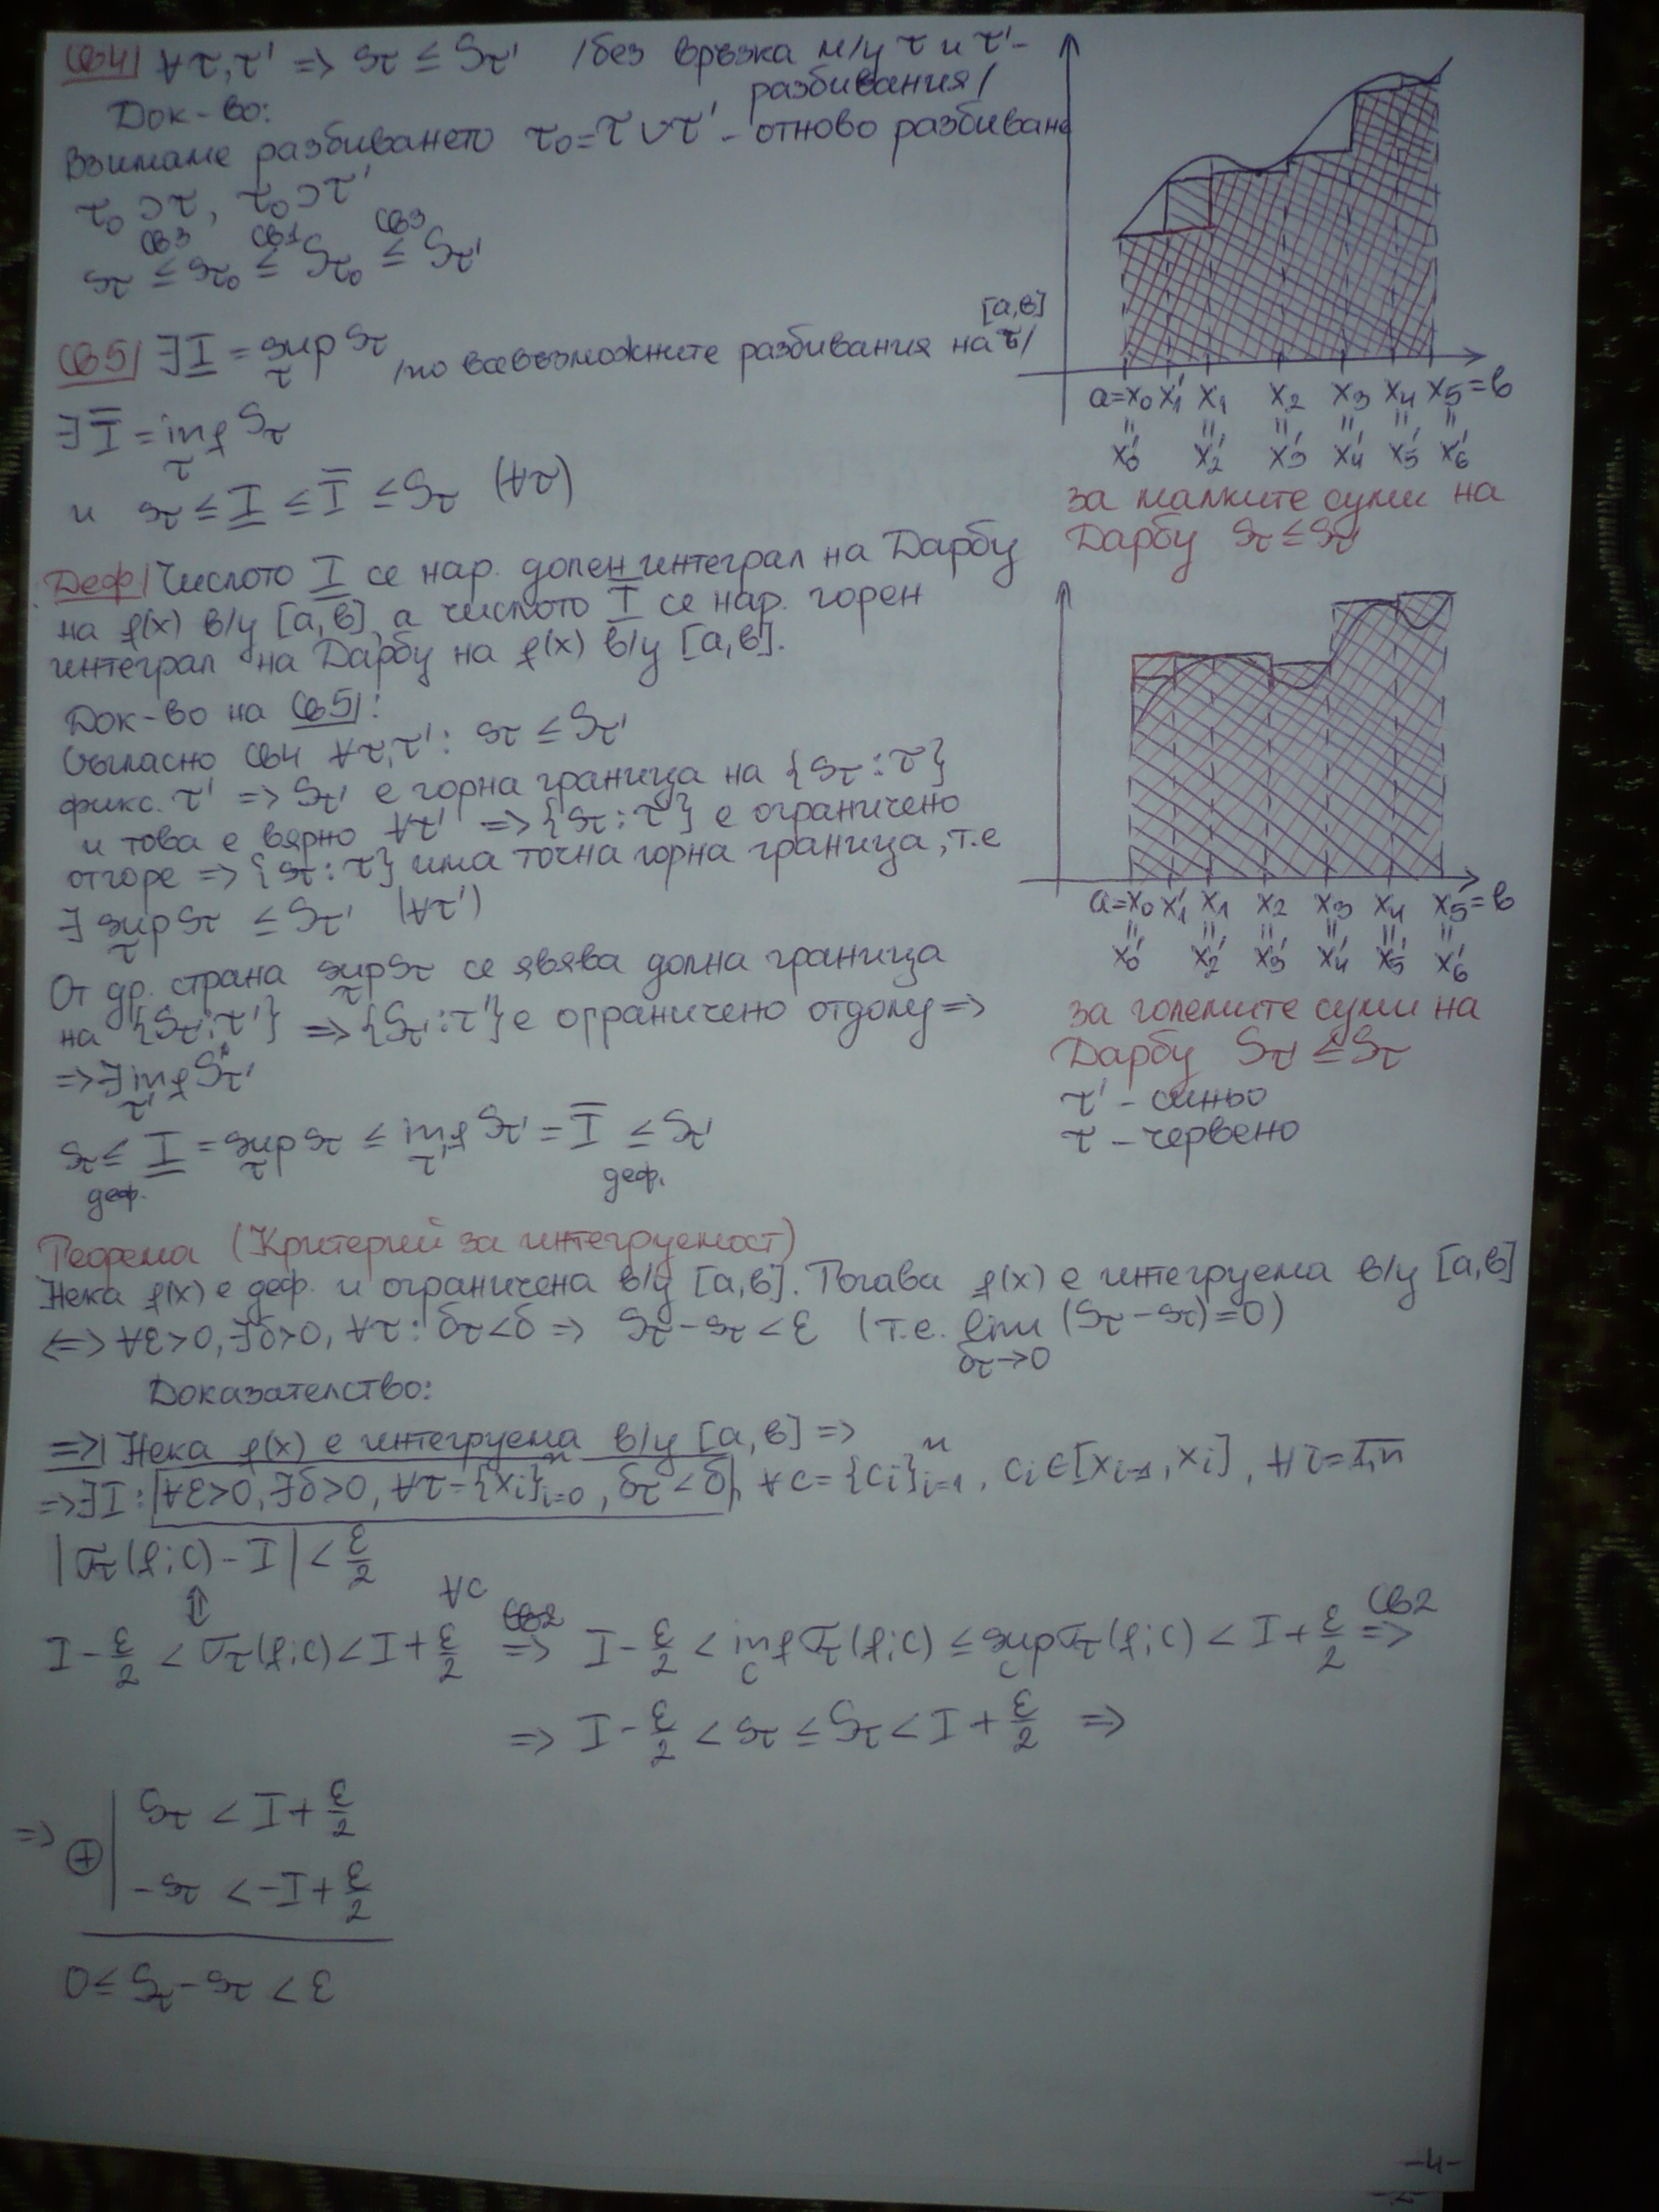 Св4| ∀τ,τ' => sτ ≤ Sτ' /без връзка м/у τ и τ' -
разбивания/
Док-во:
Взимаме разбиването τ₀=τ∪τ' - отново разбиване
τ₀⊃τ, τ₀⊃τ'
св3 св1 св3
sτ ≤ sτ₀ ≤ Sτ₀ ≤ Sτ'
Св5| ∃I̲ = sup sτ /по всевъзможните разбивания на τ/
τ
[a,b]
∃I̅ = inf Sτ
τ
и sτ ≤ I̲ ≤ I̅ ≤ Sτ (∀τ)
Деф| Числото I̲ се нар. долен интеграл на Дарбу
на f(x) в/у [a,b], а числото I̅ се нар. горен
интеграл на Дарбу на f(x) в/у [a,b].
Док-во на Св5|:
Съгласно св4 ∀τ,τ': sτ ≤ Sτ'
фикс. τ' => Sτ' е горна граница на {sτ:τ}
и това е вярно ∀τ' => {sτ:τ} е ограничено
отгоре => {sτ:τ} има точна горна граница, т.е
∃ sup sτ ≤ Sτ' (∀τ')
τ
От др. страна sup sτ се явява долна граница
τ
на {Sτ':τ'} => {Sτ':τ'} е ограничено отдолу =>
=> ∃ inf Sτ'
τ'
sτ ≤ I̲ = sup sτ ≤ inf Sτ' = I̅ ≤ Sτ'
деф. τ τ' деф.
a=x₀ x'₁ x₁ x₂ x₃ x₄ x₅=b
" " " " " "
x'₀ x'₂ x'₃ x'₄ x'₅ x'₆
за малките суми на
Дарбу sτ ≤ sτ'
a=x₀ x'₁ x₁ x₂ x₃ x₄ x₅=b
" " " " " "
x'₀ x'₂ x'₃ x'₄ x'₅ x'₆
за големите суми на
Дарбу Sτ' ≤ Sτ
τ' - синьо
τ - червено
Теорема (Критерий за интегруемост)
Нека f(x) е деф. и ограничена в/у [a,b]. Тогава f(x) е интегруема в/у [a,b]
<=> ∀ε>0, ∃δ>0, ∀τ: δτ<δ => Sτ-sτ<ε (т.е. lim (Sτ-sτ)=0)
δτ→0
Доказателство:
=>| Нека f(x) е интегруема в/у [a,b] =>
=> ∃I: ∀ε>0, ∃δ>0, ∀τ={xᵢ}ⁿᵢ₌₀, δτ<δ, ∀c={cᵢ}ⁿᵢ₌₁, cᵢ∈[xᵢ₋₁, xᵢ], ∀i=1,n
|στ(f;c)-I| < ε/2
⇕ ∀c
I-ε/2 < στ(f;c) < I+ε/2 => I-ε/2 < inf στ(f;c) ≤ sup στ(f;c) < I+ε/2 =>
c c св2
=> I-ε/2 < sτ ≤ Sτ < I+ε/2 =>
=> ⊕ | Sτ < I+ε/2
-sτ < -I+ε/2
0 ≤ Sτ-sτ < ε
-4-